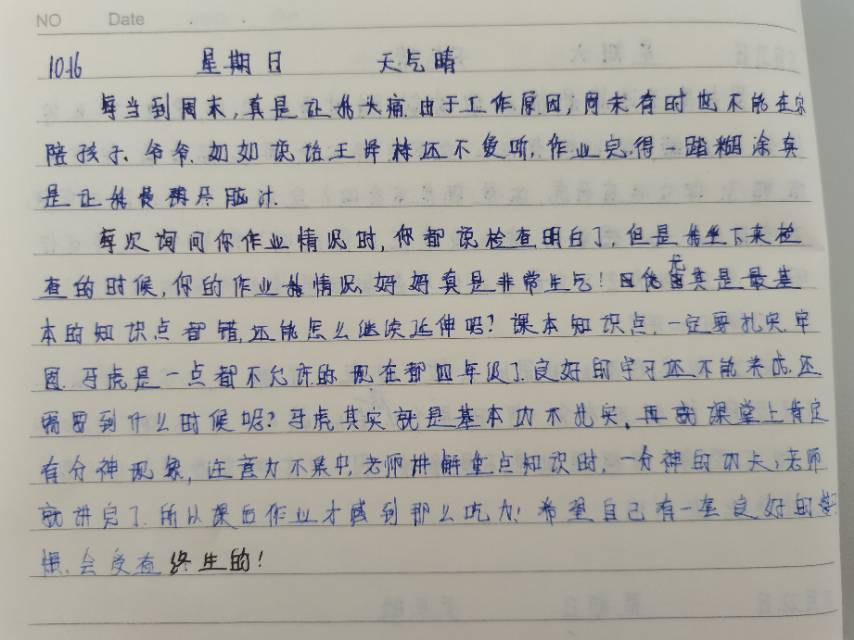 NO Date
10.16 星期日 天气晴
每当到周末,真是让我头痛.由于工作原因,周末有时也不能在家
陪孩子.爷爷.如如说话王烨林还不爱听.作业完得一踏糊涂真
是让我费尽脑汁.
每次询问你作业情况时,你都说检查明白了,但是我坐下来检
查的时候,你的作业情况.好好真是非常生气!尤其是最基
本的知识点都错,还能怎么继续延伸呢?课本知识点,一定要扎实牢
固.马虎是一点都不允许的.现在都四年级了.良好的学习还不能养成.还
需要到什么时候呢?马虎其实就是基本功不扎实,再就课堂上肯定
有分神现象,注意力不集中,老师讲解重点知识时,一分神的功夫,老师
就讲完了.所以课后作业才感到那么吃力!希望自己有一套良好的
惯.会受益终生的!